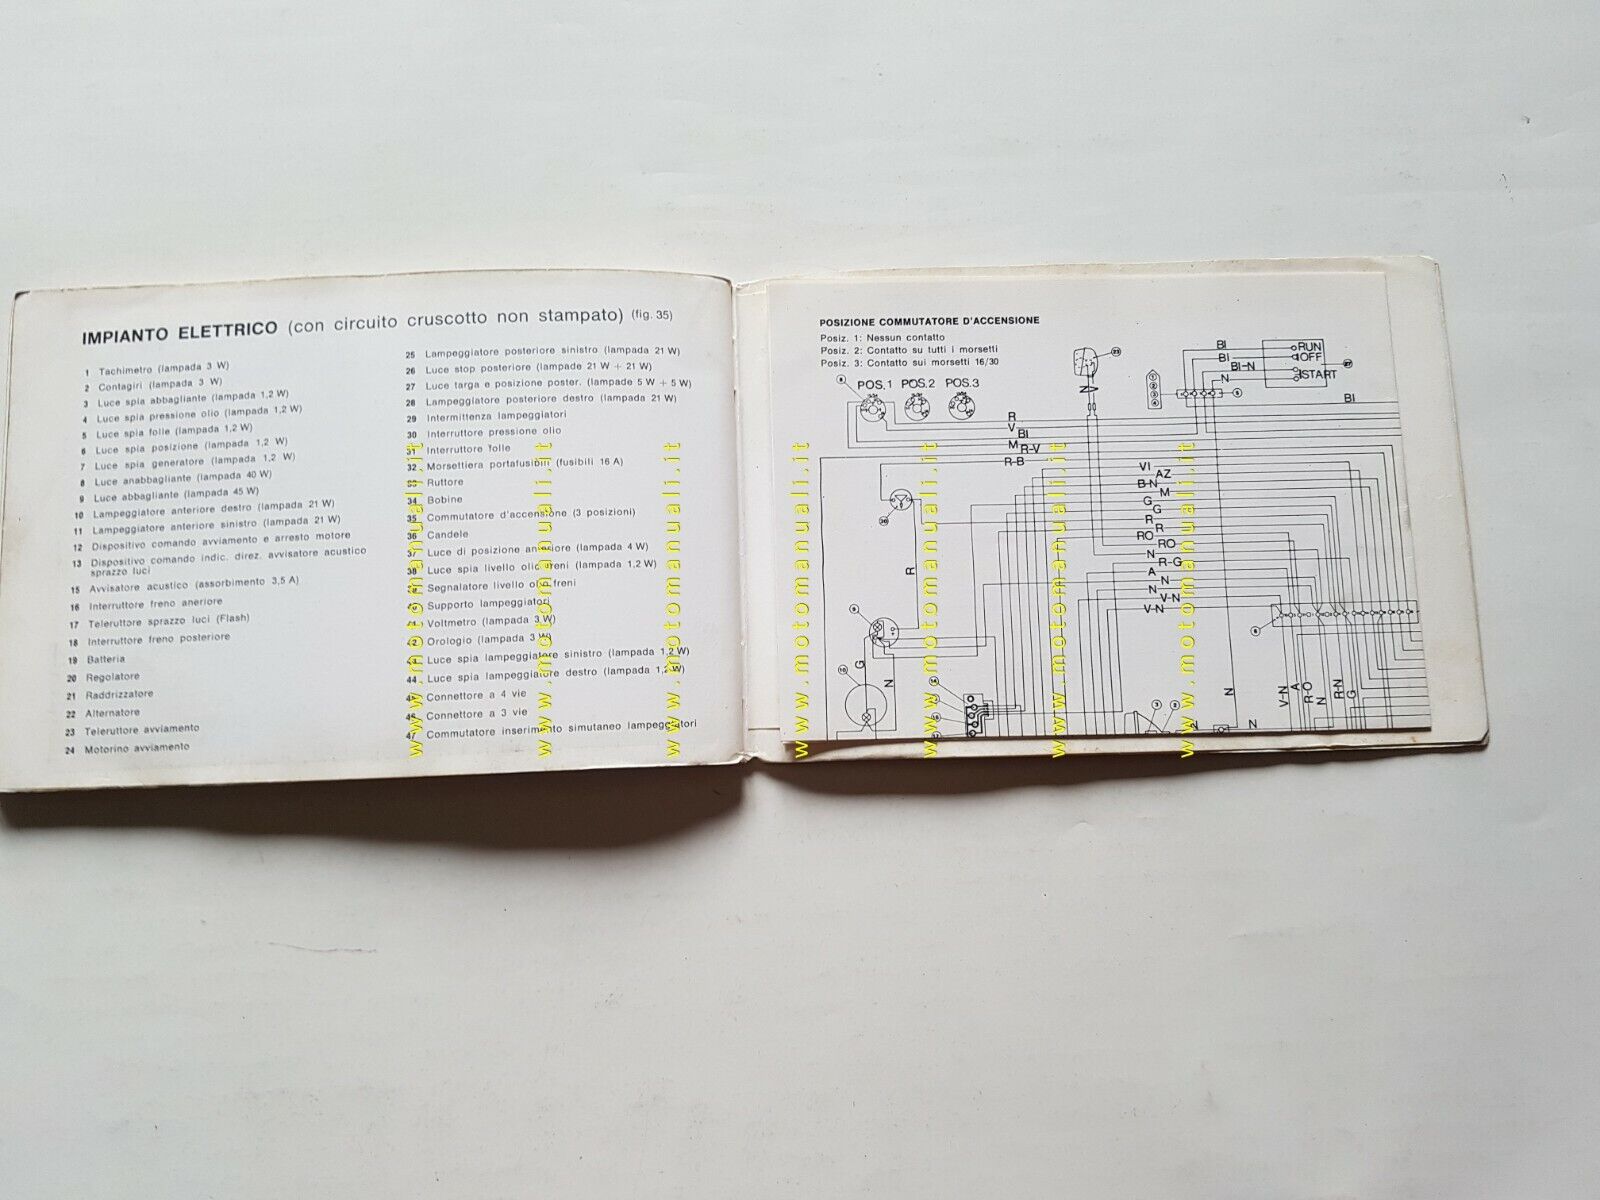 IMPIANTO ELETTRICO (con circuito cruscotto non stampato) (fig. 35)
1 Tachimetro (lampada 3 W)
2 Contagiri (lampada 3 W)
3 Luce spia abbagliante (lampada 1,2 W)
4 Luce spia pressione olio (lampada 1,2 W)
5 Luce spia folle (lampada 1,2 W)
6 Luce spia posizione (lampada 1,2 W)
7 Luce spia generatore (lampada 1,2 W)
8 Luce anabbagliante (lampada 40 W)
9 Luce abbagliante (lampada 45 W)
10 Lampeggiatore anteriore destro (lampada 21 W)
11 Lampeggiatore anteriore sinistro (lampada 21 W)
12 Dispositivo comando avviamento e arresto motore
13 Dispositivo comando indic. direz. avvisatore acustico
sprazzo luci
15 Avvisatore acustico (assorbimento 3,5 A)
16 Interruttore freno aneriore
17 Teleruttore sprazzo luci (Flash)
18 Interruttore freno posteriore
19 Batteria
20 Regolatore
21 Raddrizzatore
22 Alternatore
23 Teleruttore avviamento
24 Motorino avviamento
25 Lampeggiatore posteriore sinistro (lampada 21 W)
26 Luce stop posteriore (lampade 21 W + 21 W)
27 Luce targa e posizione poster. (lampade 5 W + 5 W)
28 Lampeggiatore posteriore destro (lampada 21 W)
29 Intermittenza lampeggiatori
30 Interruttore pressione olio
31 Interruttore folle
32 Morsettiera portafusibili (fusibili 16 A)
33 Ruttore
34 Bobine
35 Commutatore d'accensione (3 posizioni)
36 Candele
37 Luce di posizione anteriore (lampada 4 W)
38 Luce spia livello olio freni (lampada 1,2 W)
39 Segnalatore livello olio freni
40 Supporto lampeggiatori
41 Voltmetro (lampada 3 W)
42 Orologio (lampada 3 W)
43 Luce spia lampeggiatore sinistro (lampada 1,2 W)
44 Luce spia lampeggiatore destro (lampada 1,2 W)
45 Connettore a 4 vie
46 Connettore a 3 vie
47 Commutatore inserimento simutaneo lampeggiatori
www.motomanuali.it
www.motomanuali.it
www.motomanuali.it
POSIZIONE COMMUTATORE D'ACCENSIONE
Posiz. 1: Nessun contatto
Posiz. 2: Contatto su tutti i morsetti
Posiz. 3: Contatto sui morsetti 16/30
POS.1 POS.2 POS.3
BI
BI
BI-N
N
RUN
OFF
START
BI
N
R
V
BI
M
R-V
R-B
VI
AZ
B-N
M
G
G
R
R
RO
RO
N
R-G
A
N
N
V-N
V-N
R
G
N
N
N
V-N
A
R-O
N
R-N
G
www.motomanuali.it
www.motomanuali.it
www.motomanuali.it
www.motomanuali.it